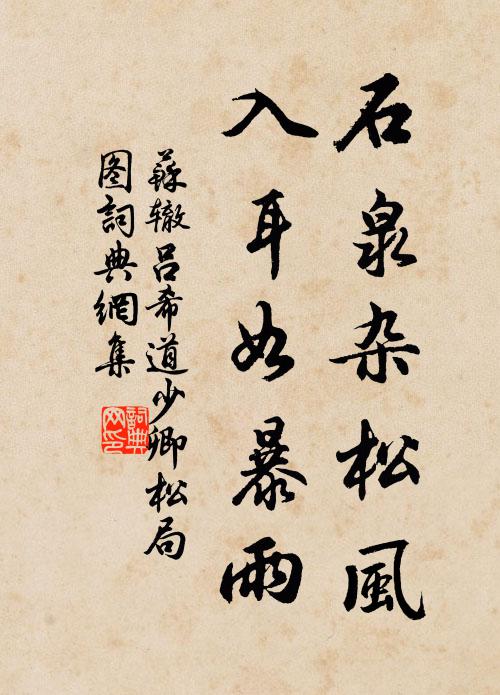 石泉杂松風
入耳如暴雨
蘇辙吕希道少卿松局
图詞典網集
詞典
网印